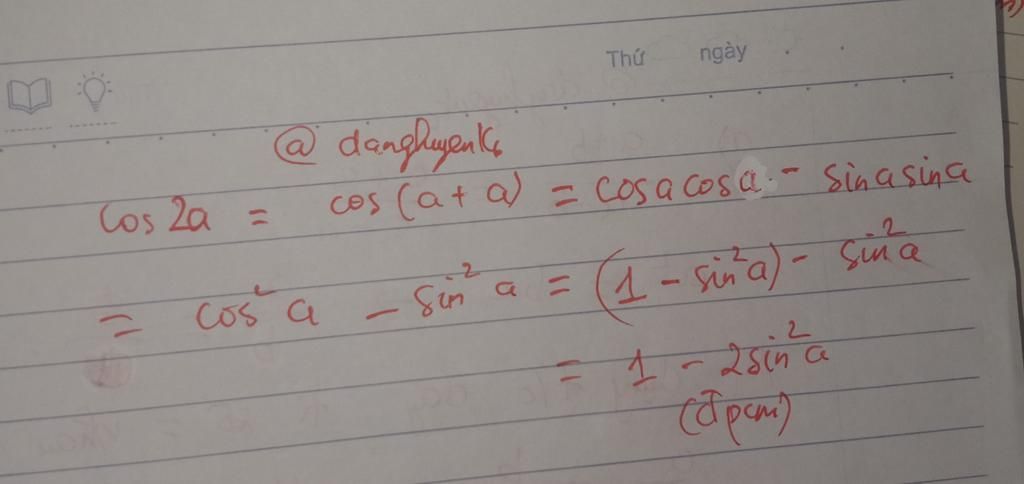 Thứ ngày . .
@ danghuyenk6
cos 2a = cos (a + a) = cos a cos a - sin a sin a
= cos² a - sin² a = (1 - sin² a) - sin² a
= 1 - 2 sin² a
(đpcm)